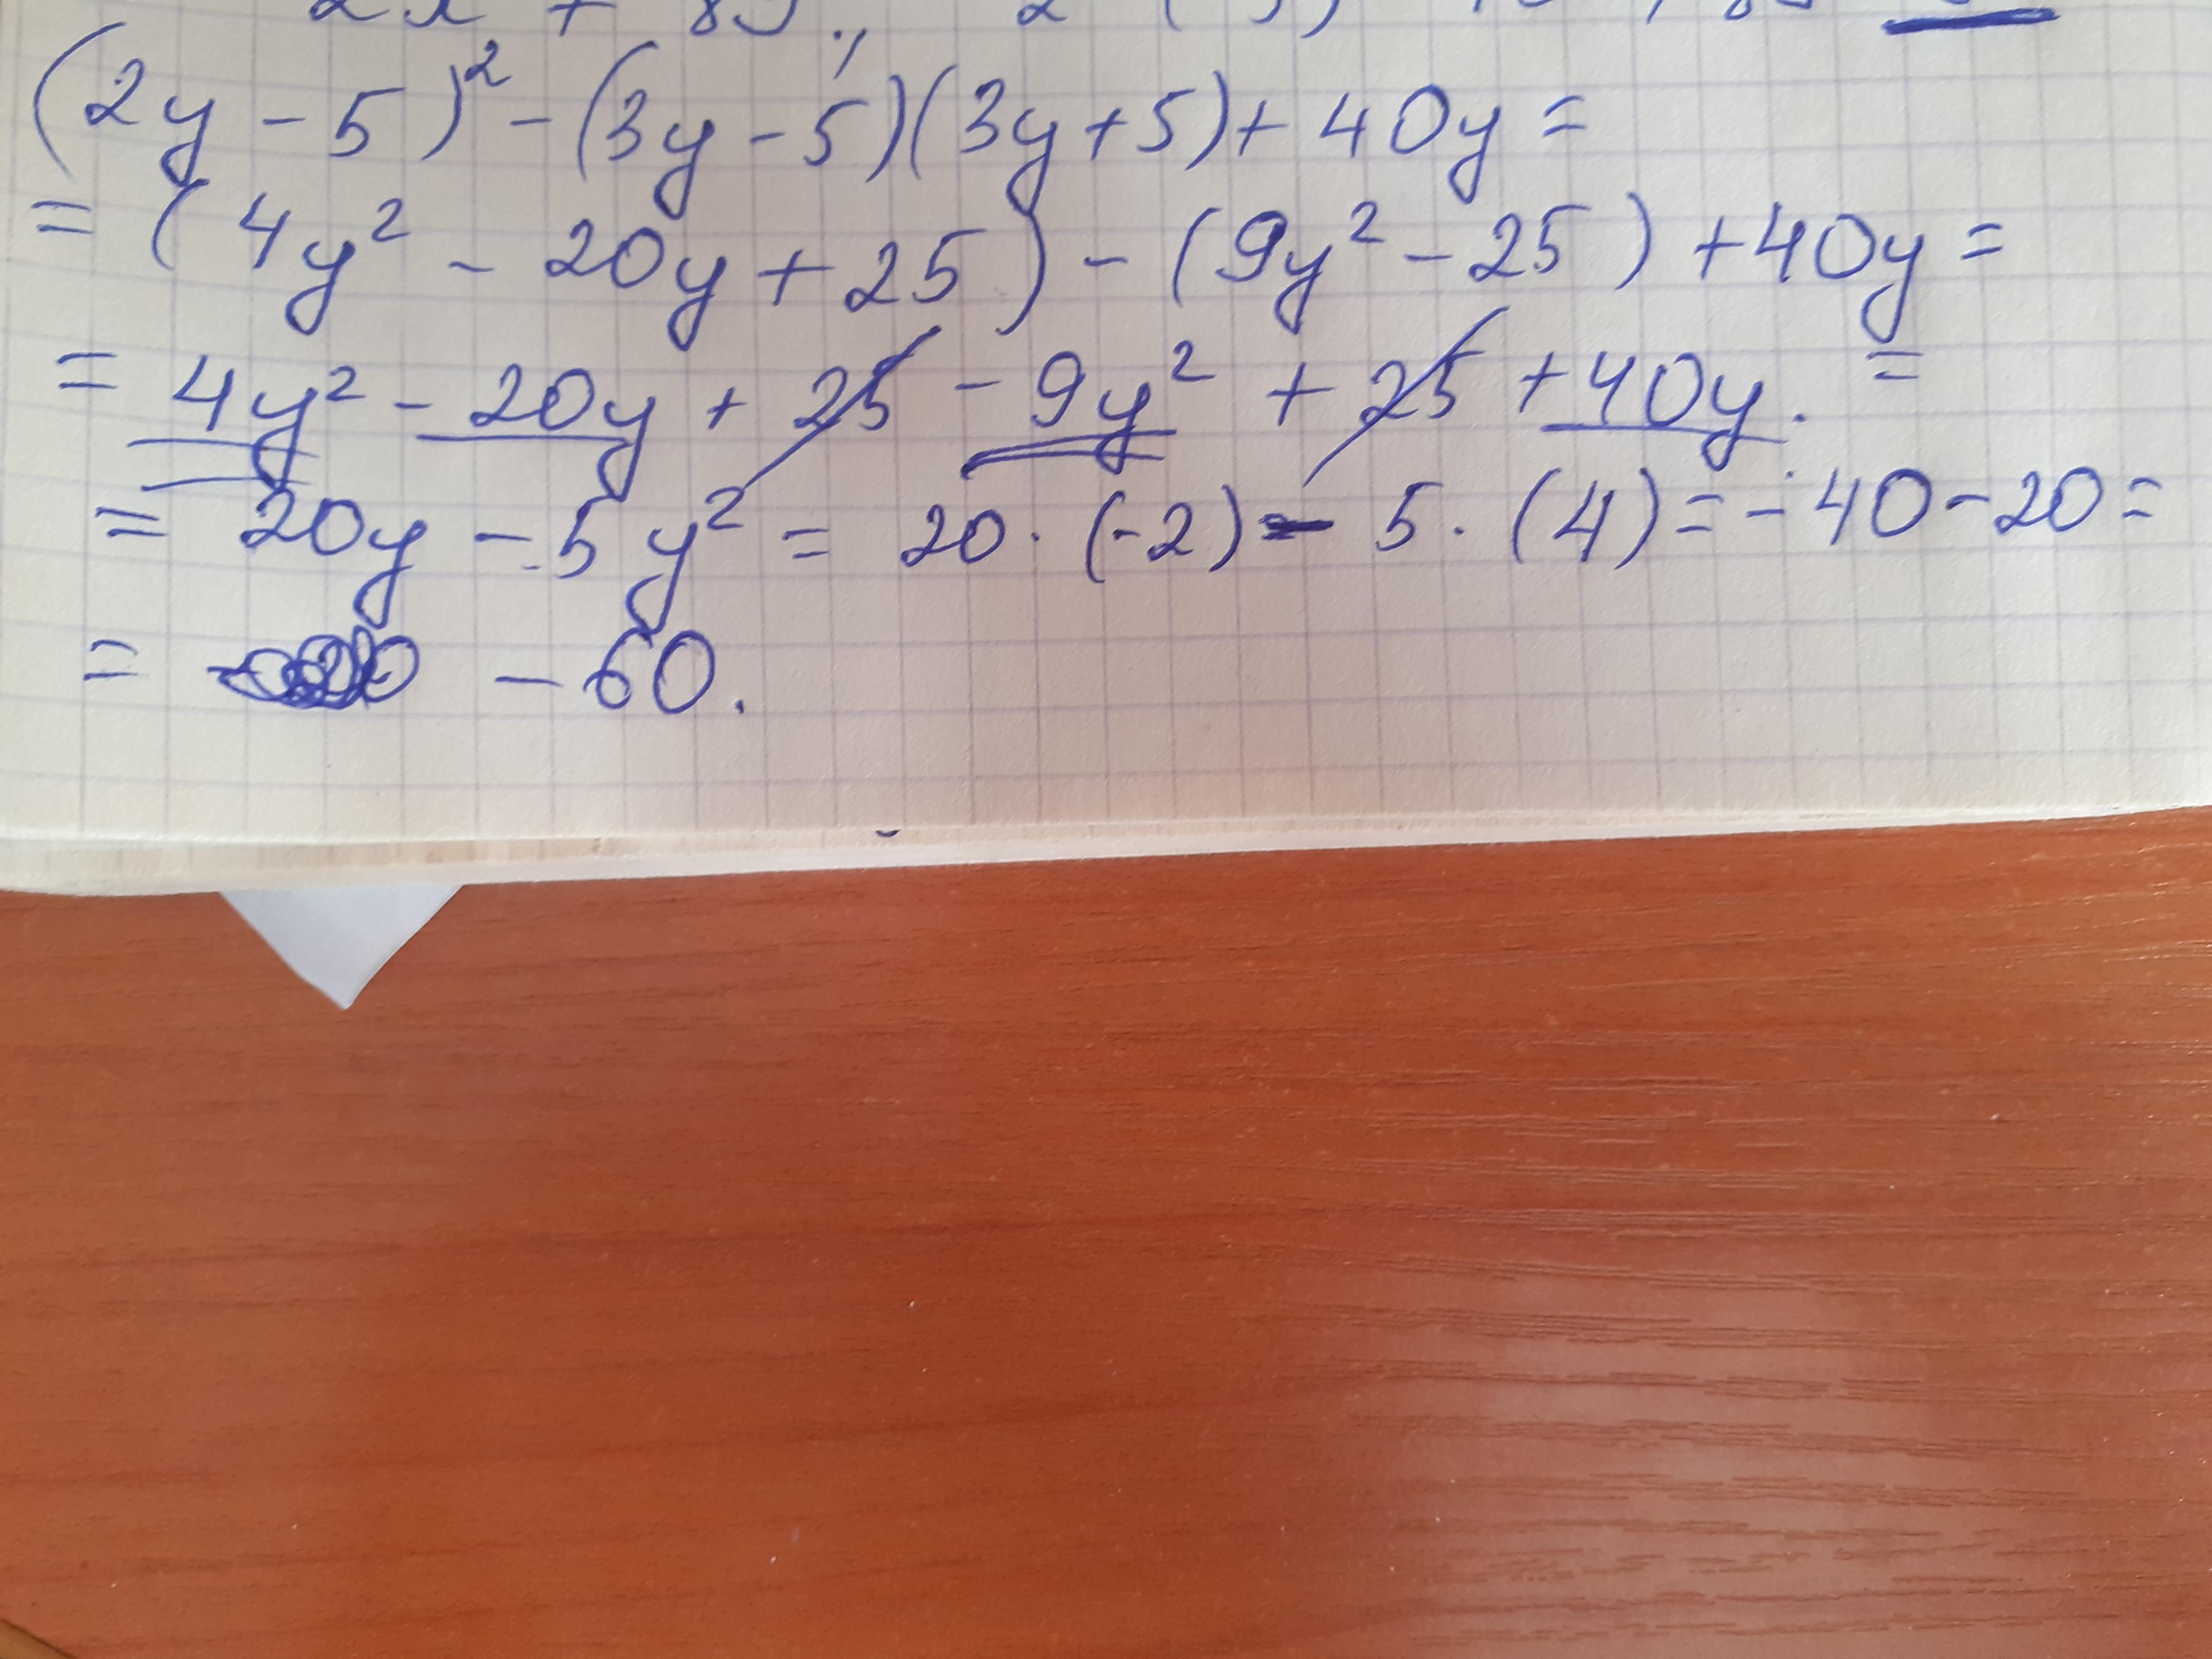 (2y - 5)² - (3y - 5)(3y + 5) + 40y =
= (4y² - 20y + 25) - (9y² - 25) + 40y =
= 4y² - 20y + 25 - 9y² + 25 + 40y. =
= 20y - 5y² = 20 · (-2) - 5 · (4) = - 40 - 20 =
= - 60.